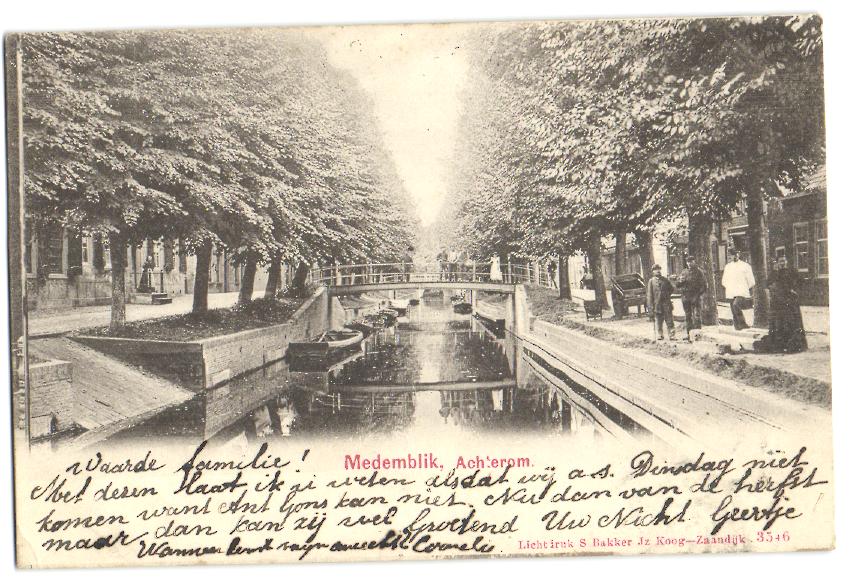 Waarde familie!
Medemblik, Achterom.
Met dezen laat ik u weten alsdat wij a.s. Dinsdag niet
komen want Ant Gons kan niet. Nu dan van de herfst
maar dan kan zij wel Groetend Uw Nicht Geertje!
Wanneer
Lichtdruk S Bakker Jz Koog—Zaandijk. 3546